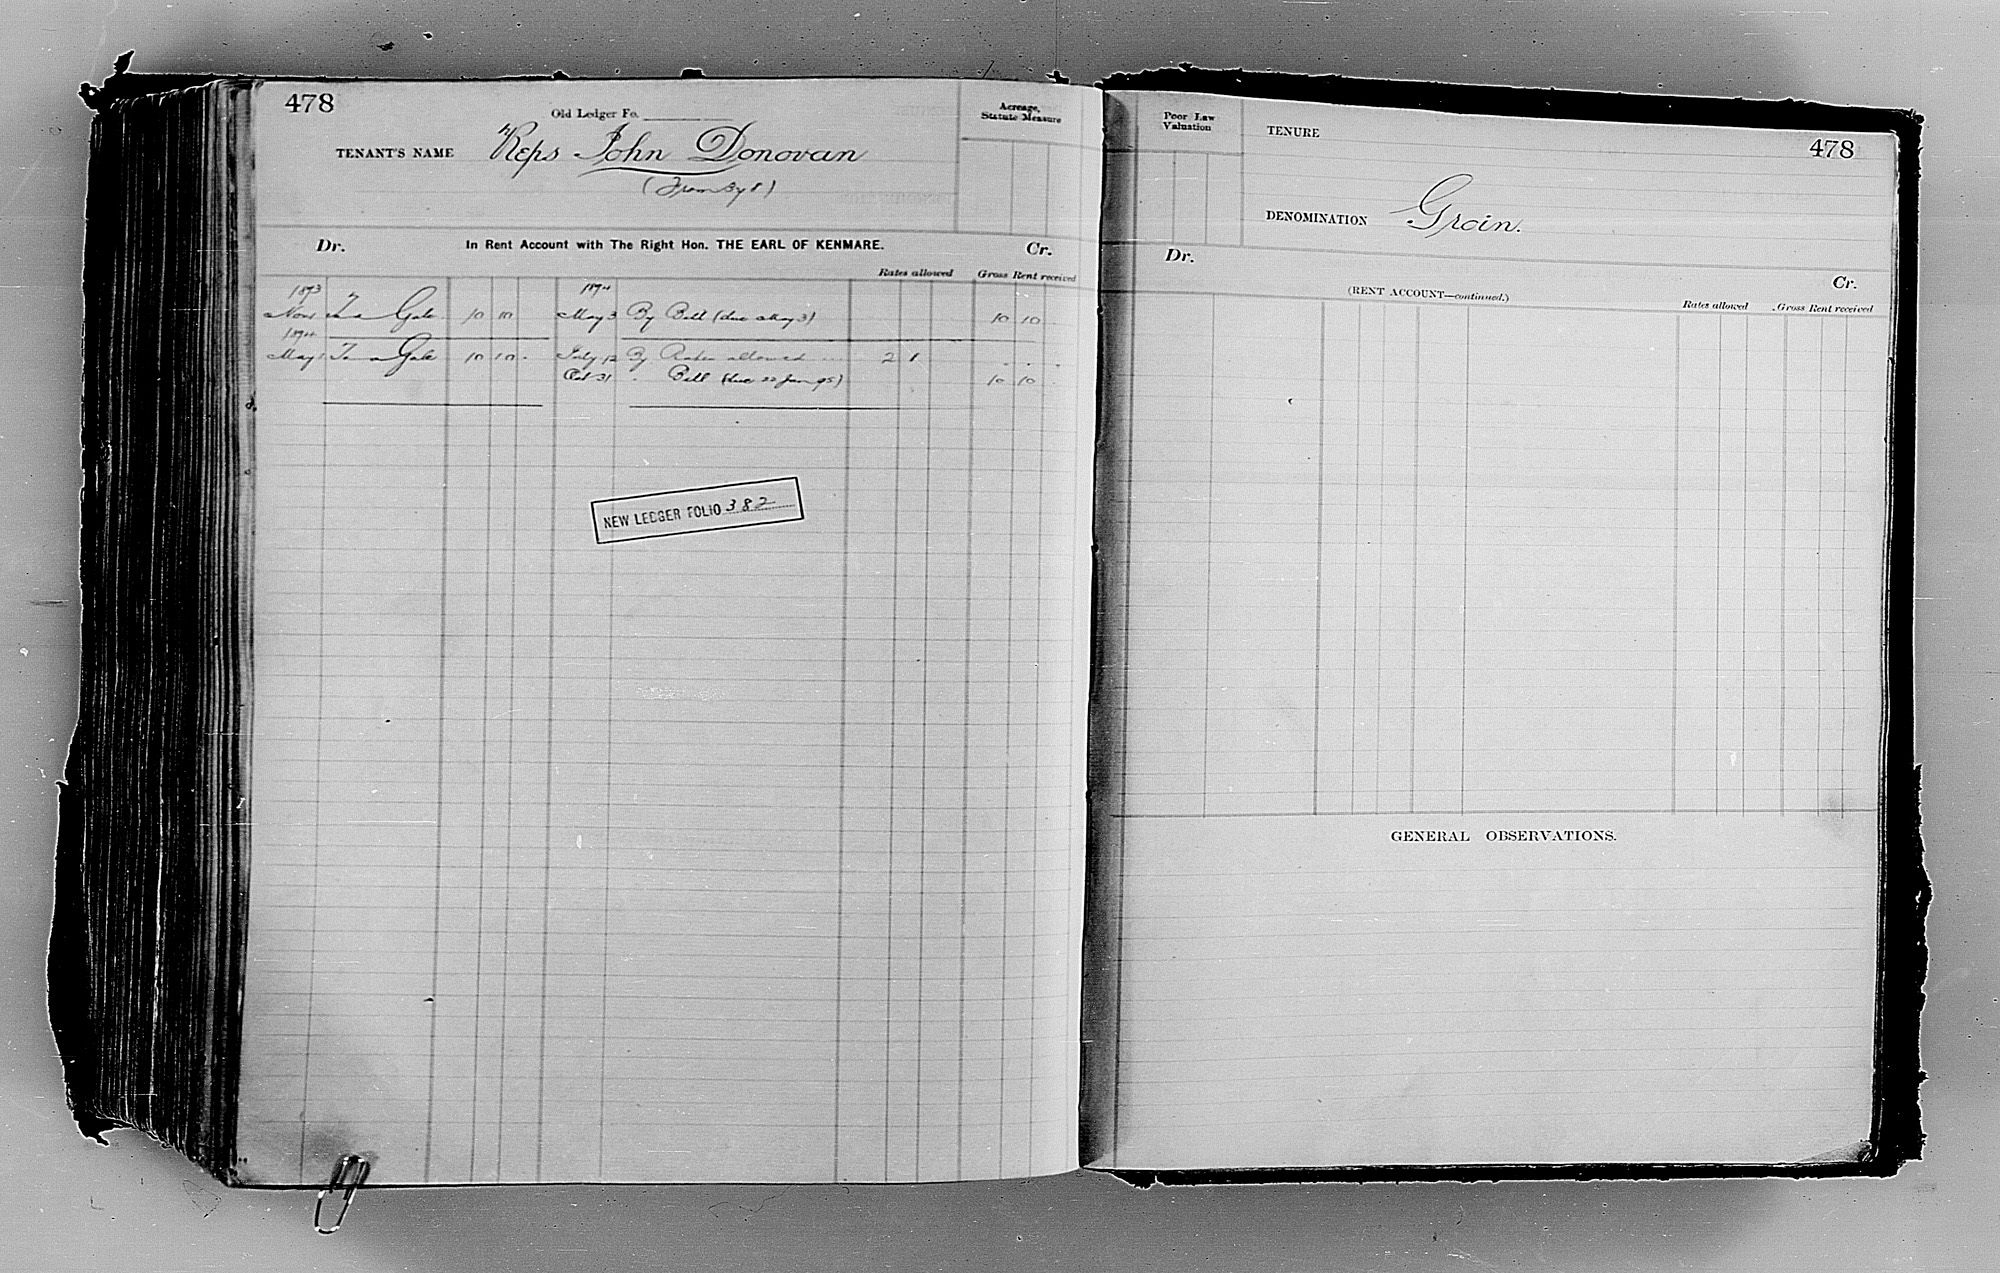 478
Old Ledger Fo.
Acreage, Statute Measure
TENANT'S NAME Reps John Donovan
Dr. In Rent Account with The Right Hon. THE EARL OF KENMARE. Cr.
Rates allowed Gross Rent received
1893 1894
Nov To a Gale 10 10 May 3 By Bill (due May 3) 10 10
1894
May 1 To a Gale 10 10 - July 12 By Rates allowed 2 1
Oct 31 Bill (due 22 Jan 95) 10 10
NEW LEDGER FOLIO 382
Poor Law Valuation
TENURE
478
DENOMINATION Groin.
Dr. Cr.
(RENT ACCOUNT—continued.)
Rates allowed Gross Rent received
GENERAL OBSERVATIONS.